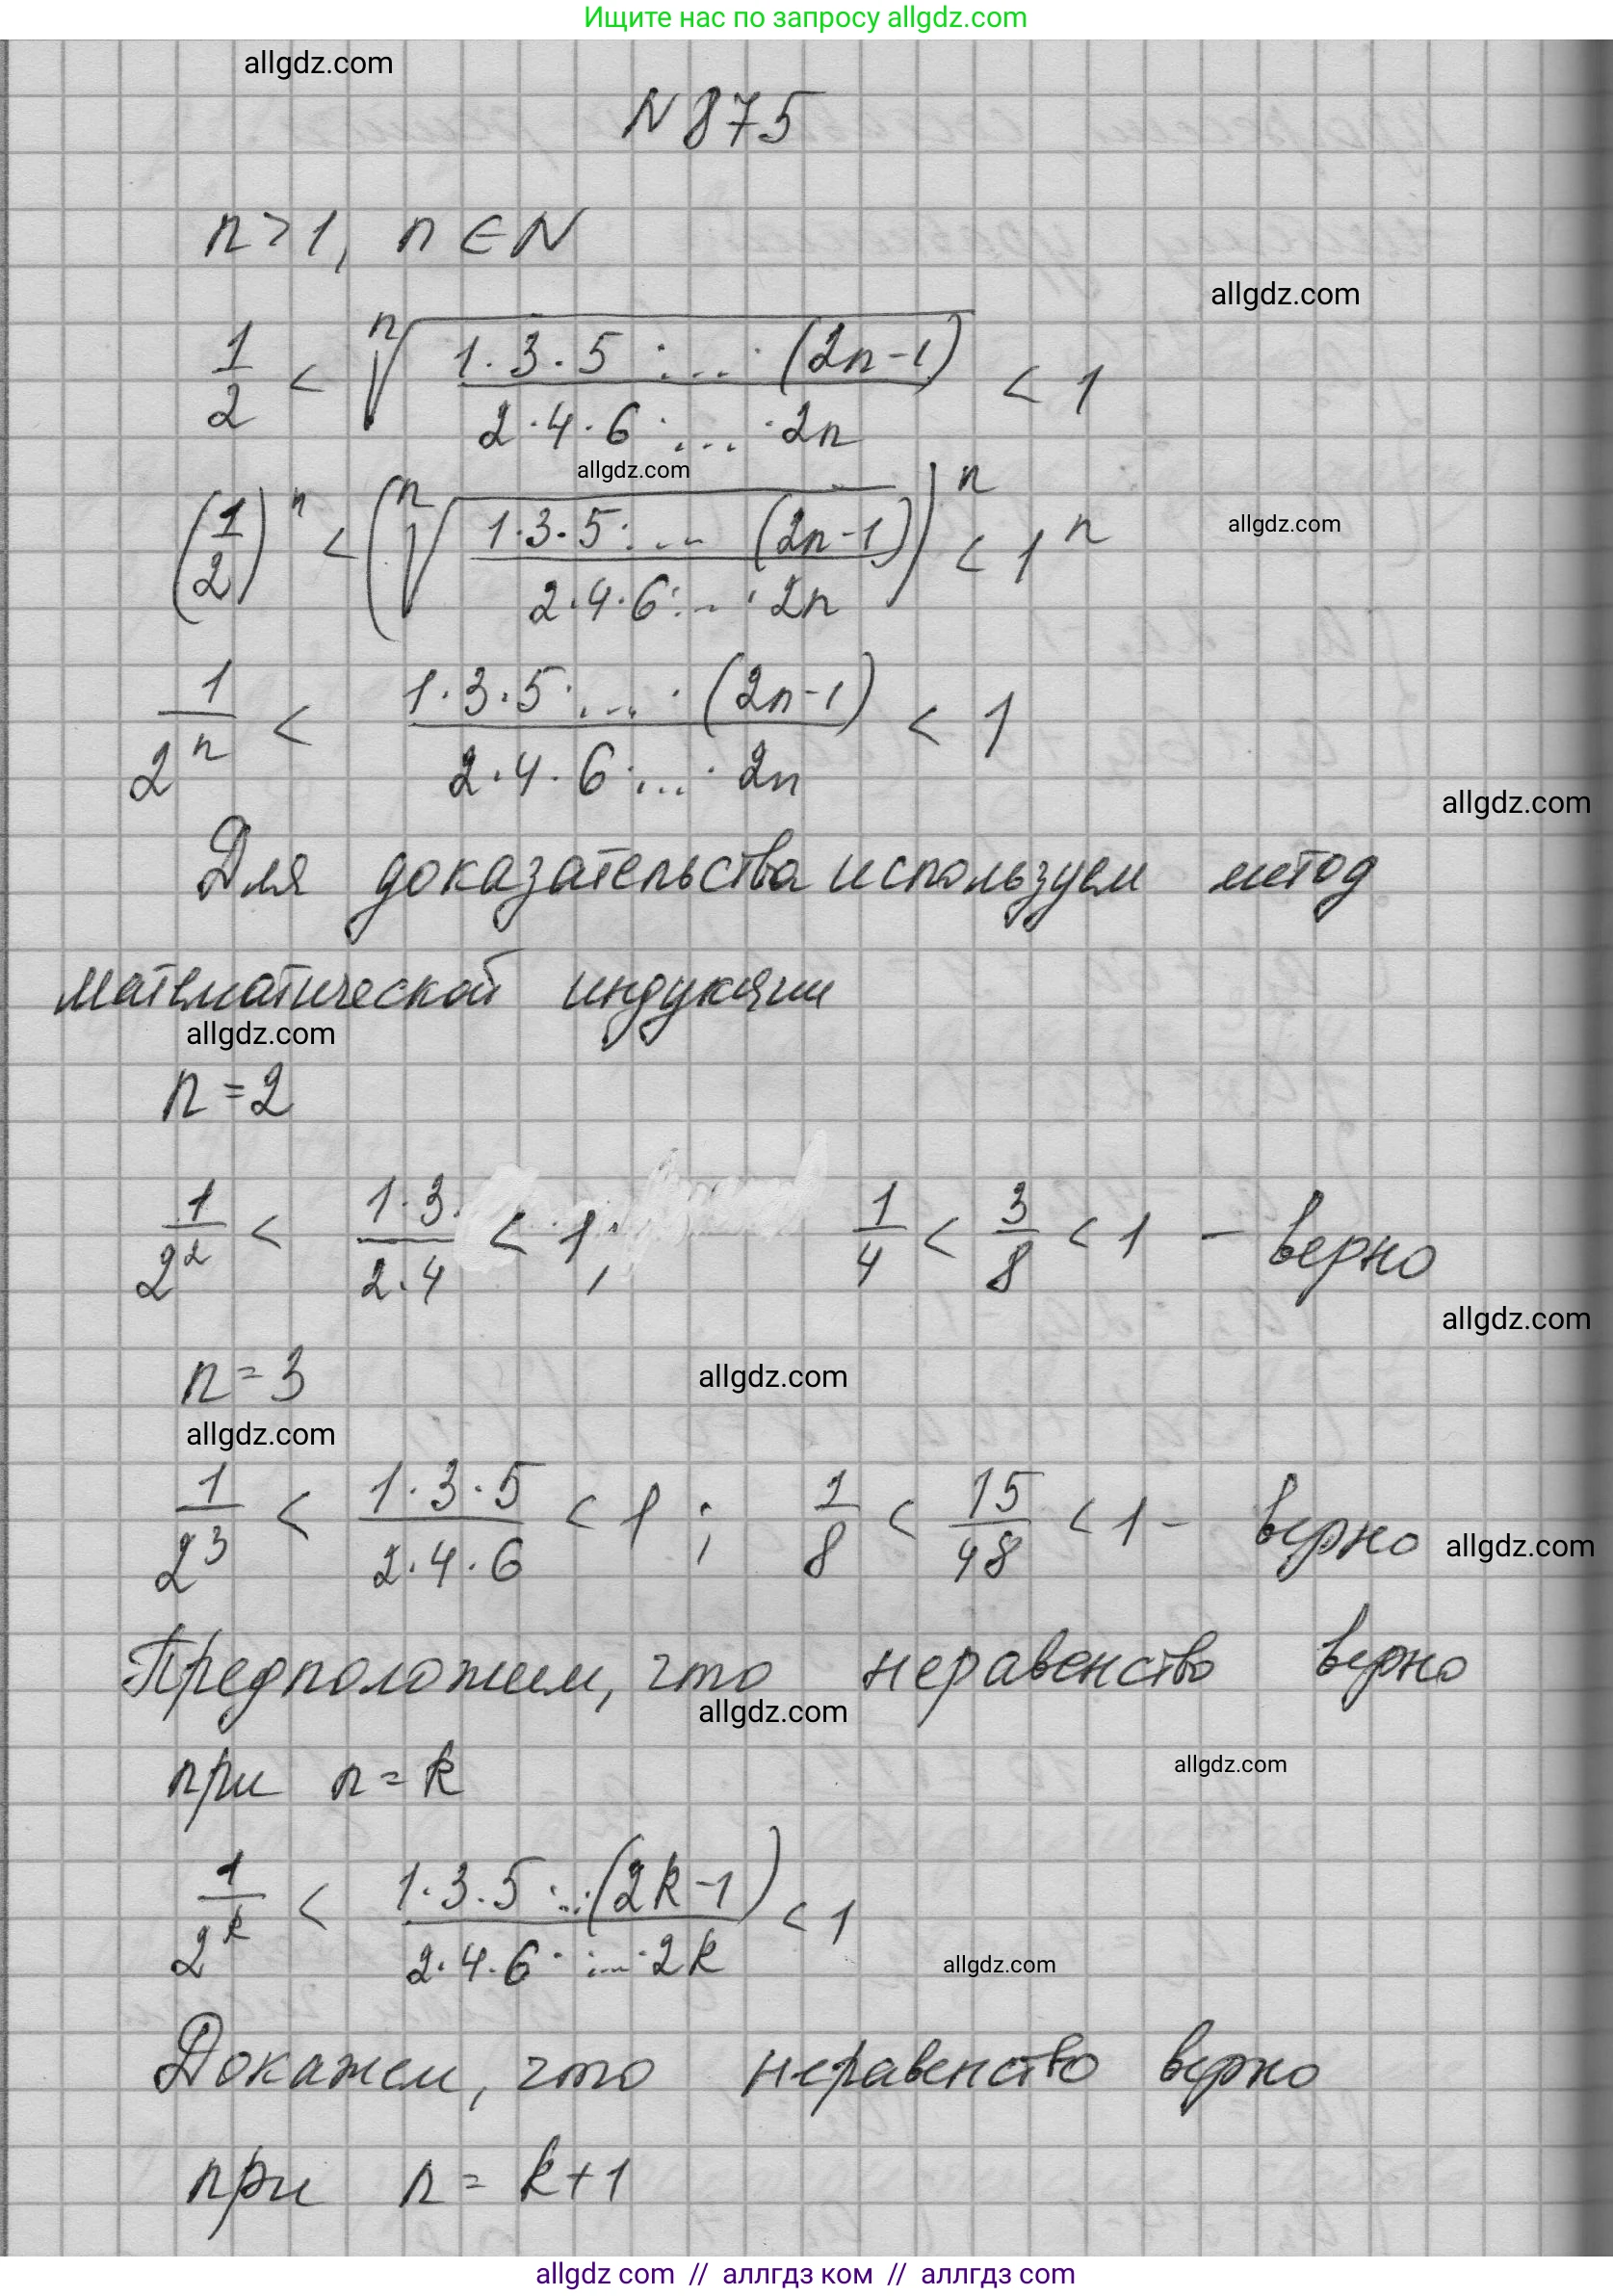 Ищите нас по запросу allgdz.com
allgdz.com
N 875
n > 1, n ∈ N
allgdz.com
1/2 < ⁿ√(1·3·5·...·(2n-1) / 2·4·6·...·2n) < 1
allgdz.com
(1/2)ⁿ < (ⁿ√(1·3·5·...(2n-1) / 2·4·6·...·2n))ⁿ < 1ⁿ
allgdz.com
1/2ⁿ < 1·3·5·...·(2n-1) / 2·4·6·...·2n < 1
allgdz.com
Для доказательства используем метод
математической индукции
allgdz.com
n = 2
1/2² < 1·3·/2·4 < 1; 1/4 < 3/8 < 1 - верно
allgdz.com
n = 3
allgdz.com
allgdz.com
1/2³ < 1·3·5/2·4·6 < 1; 1/8 < 15/48 < 1 - верно
allgdz.com
Предположим, что неравенство верно
allgdz.com
при n = k
allgdz.com
1/2ᵏ < 1·3·5·...(2k-1) / 2·4·6·...·2k < 1
allgdz.com
Докажем, что неравенство верно
при n = k+1
allgdz com // аллгдз ком // аллгдз com